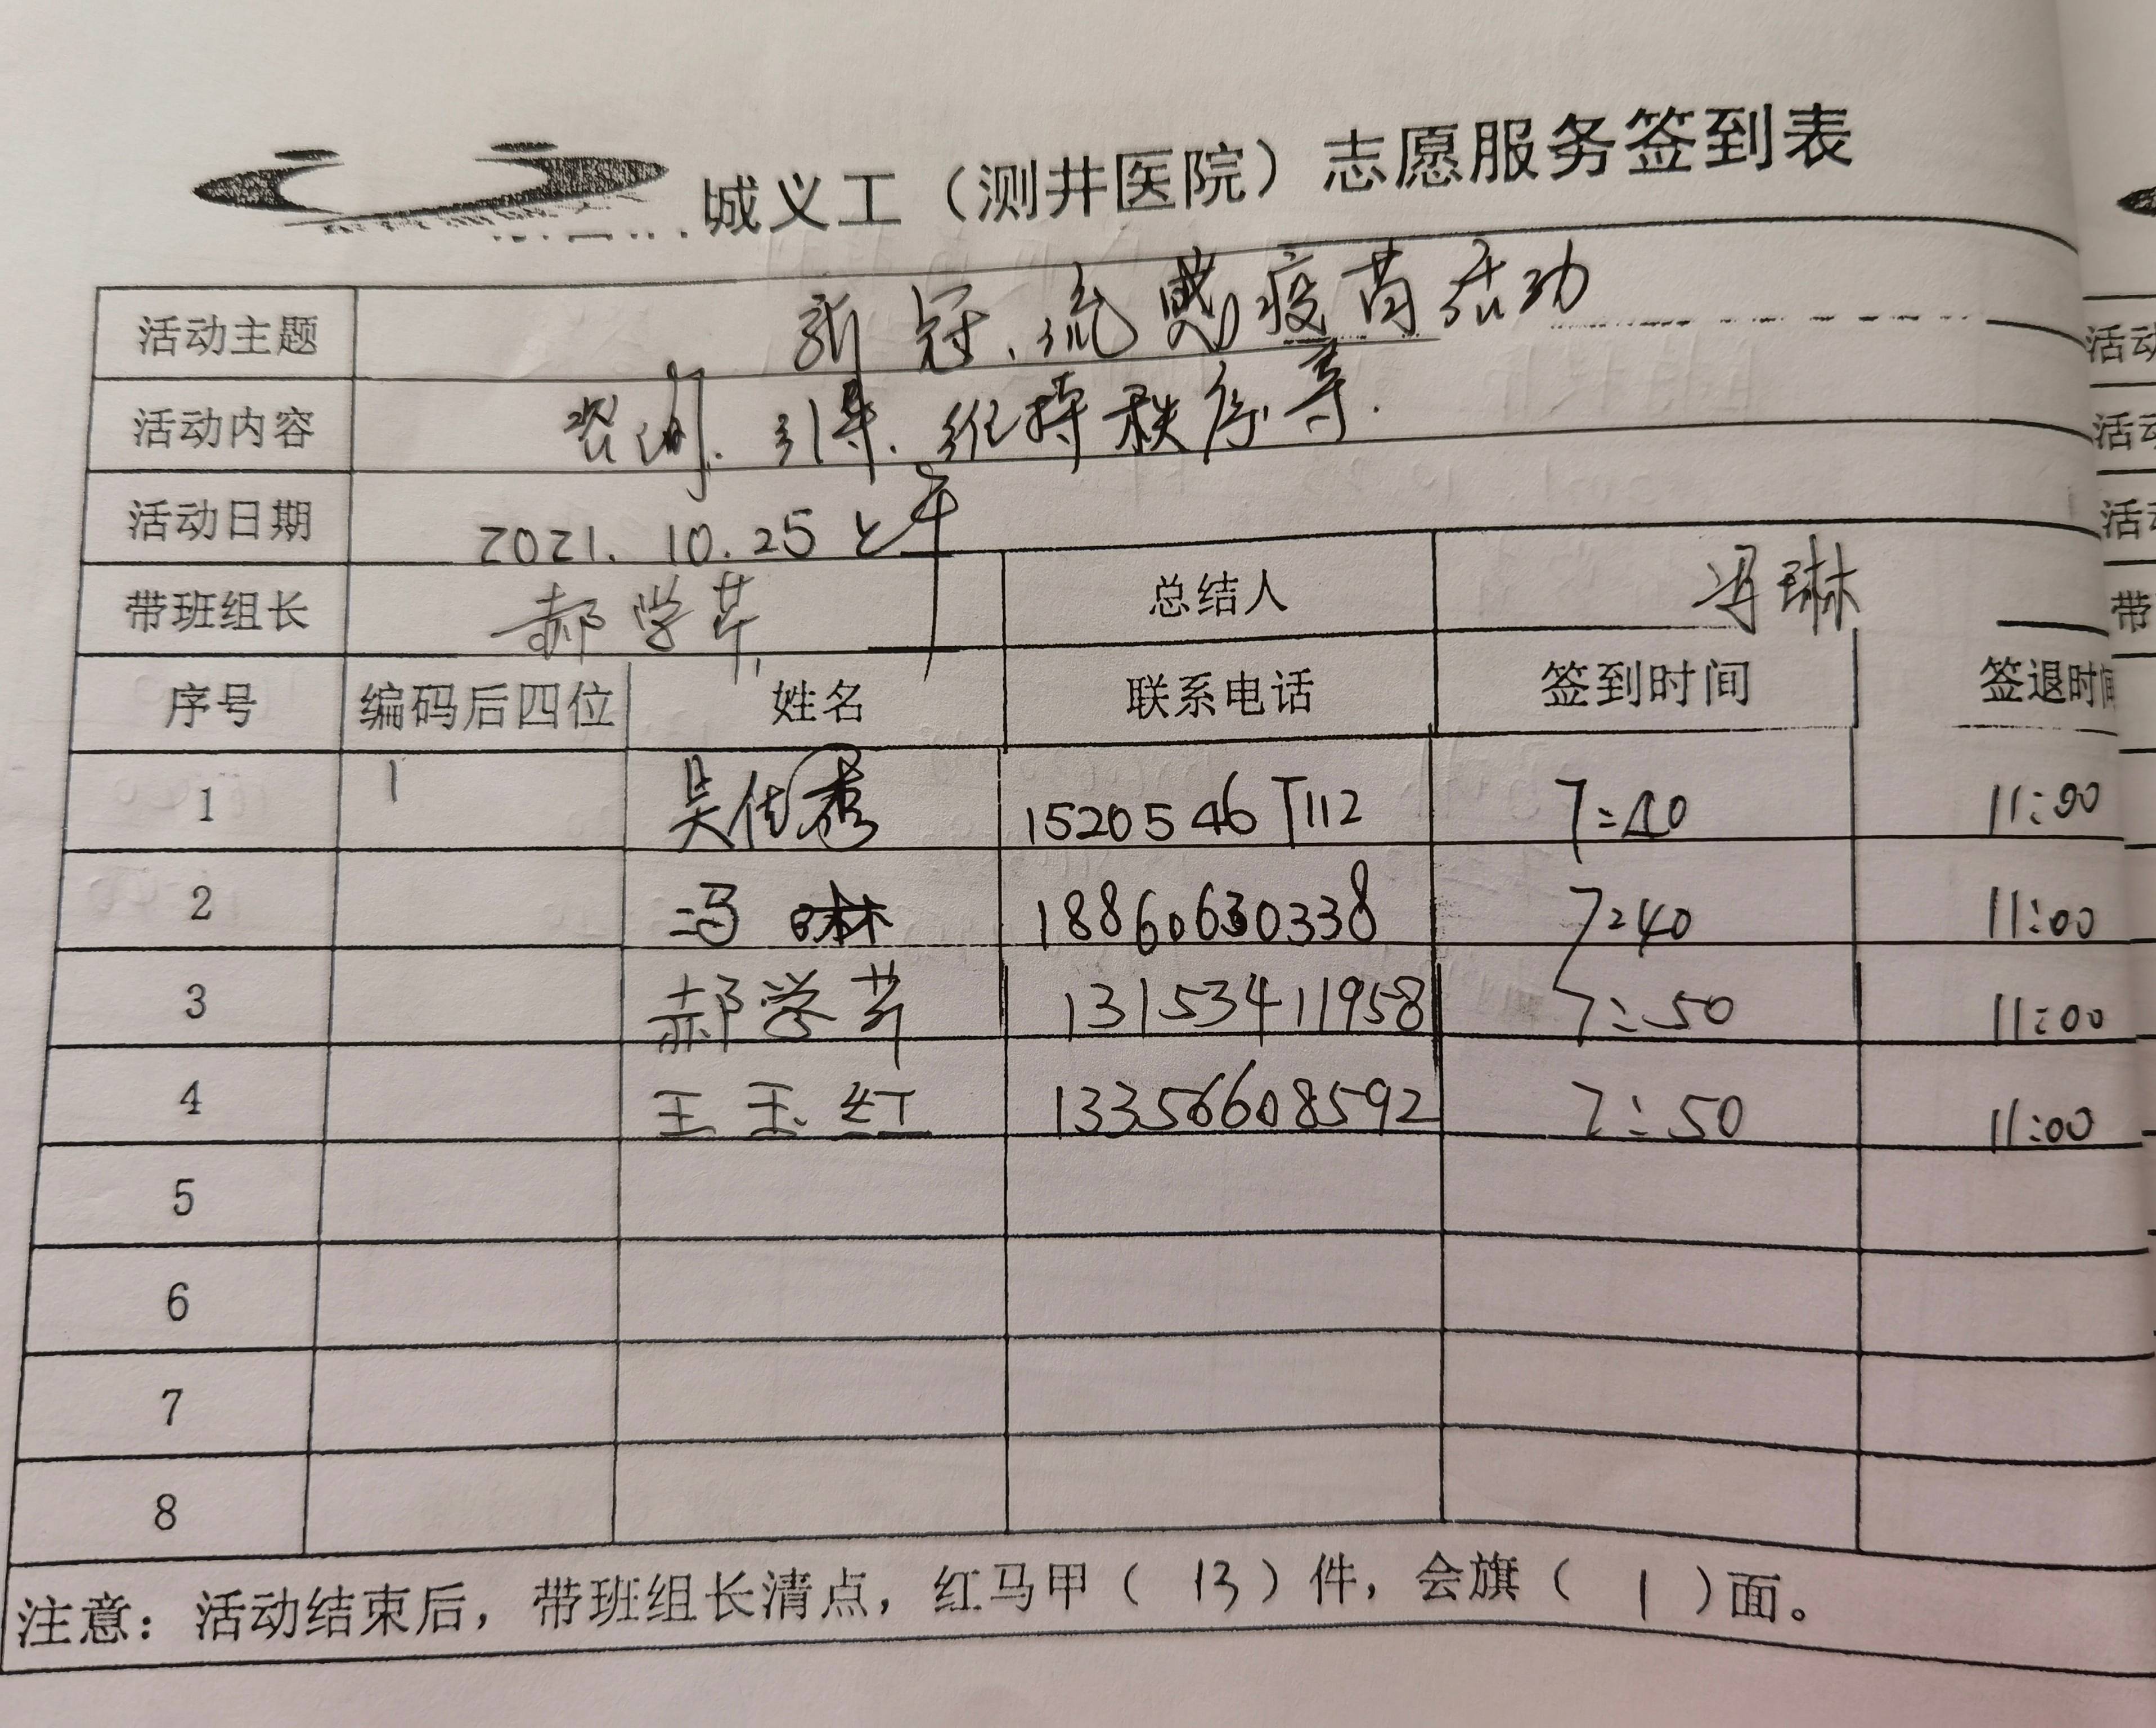 城义工（测井医院）志愿服务签到表
活动主题 新冠、流感疫苗活动
活动内容 咨询、引导、维持秩序等.
活动日期 2021.10.25上午
带班组长 郝学芹 总结人 冯琳
序号 编码后四位 姓名 联系电话 签到时间 签退时间
1 吴仕秀 15205467112 7:40 11:00
2 冯琳 18860630338 7:40 11:00
3 郝学芹 13153411958 7:50 11:00
4 王玉红 13356608592 7:50 11:00
5
6
7
8
注意：活动结束后，带班组长清点，红马甲（13）件，会旗（1）面。
活动
活动
活动
带